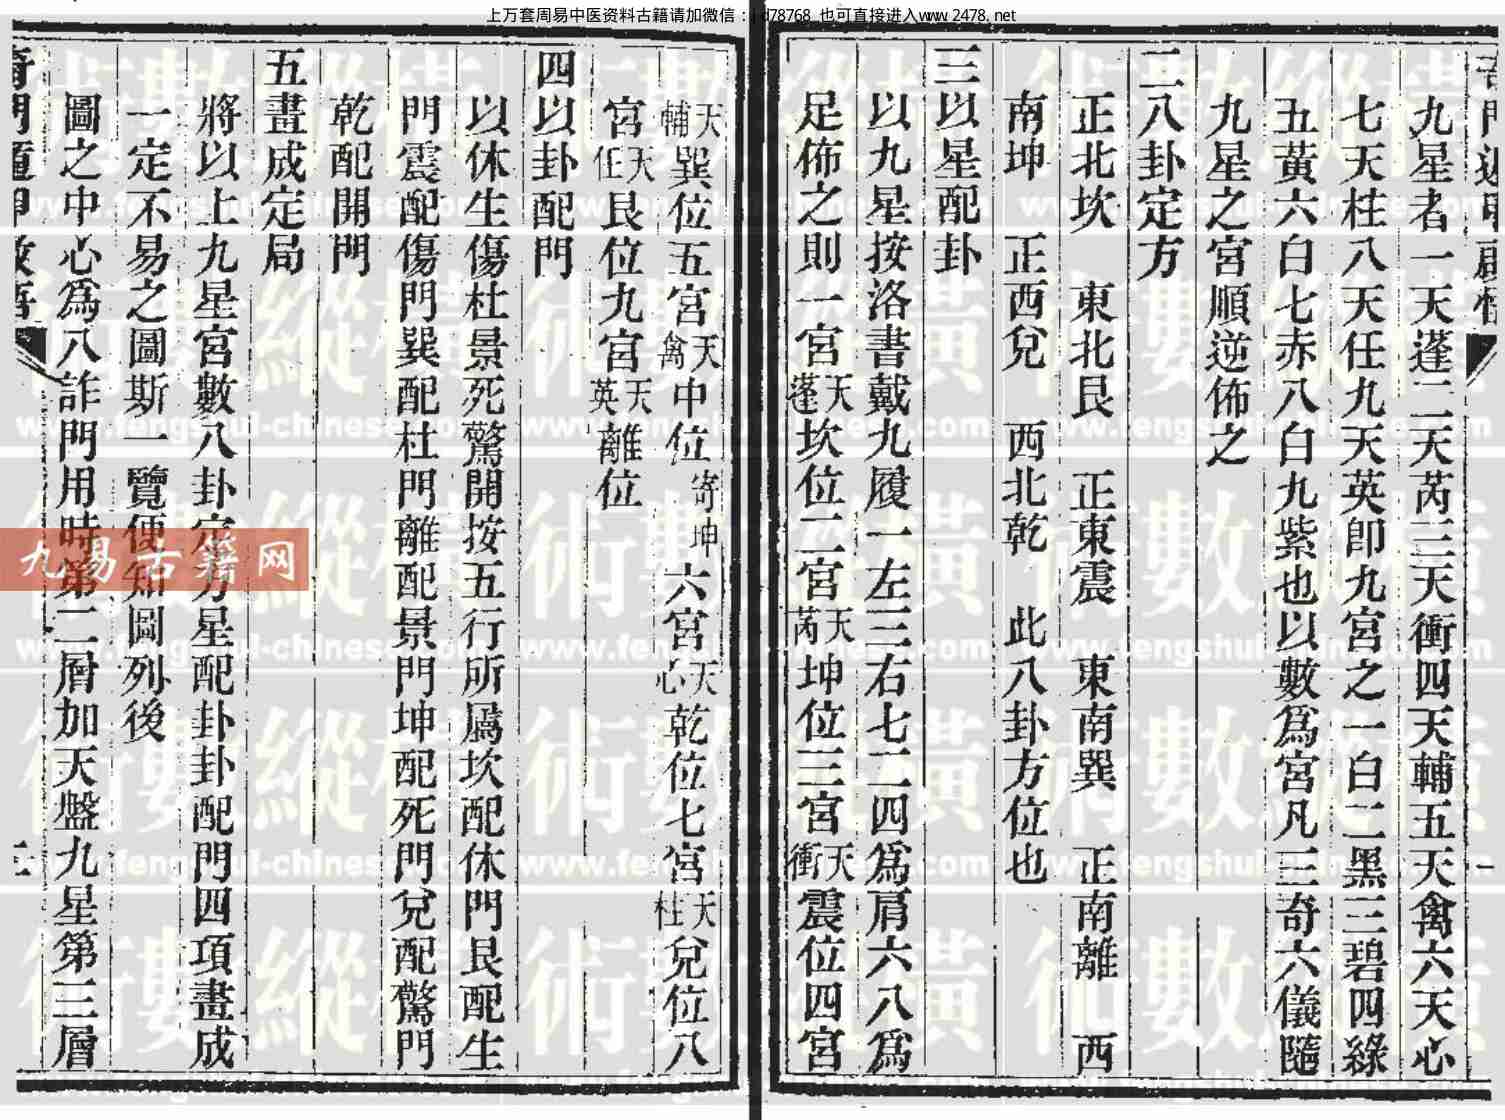 上万套周易中医资料古籍请加微信：jd78768 也可直接进入www.2478.net
九星者一天蓬二天芮三天衝四天輔五天禽六天心
七天柱八天任九天英卽九宮之一白二黑三碧四綠
五黃六白七赤八白九紫也以數爲宮凡三奇六儀隨
九星之宮順逆佈之
二八卦定方
正北坎　東北艮　正東震　東南巽　正南離　西
南坤　正西兌　西北乾　此八卦方位也
三以星配卦
以九星按洛書戴九履一左三右七二四爲肩六八爲
足佈之則一宮天蓬坎位二宮天芮坤位三宮天衝震位四宮
天輔巽位五宮天禽中位寄坤六宮天心乾位七宮天柱兌位八
宮天任艮位九宮天英離位
四以卦配門
以休生傷杜景死驚開按五行所屬坎配休門艮配生
門震配傷門巽配杜門離配景門坤配死門兌配驚門
乾配開門
五畫成定局
將以上九星宮數八卦定方星配卦卦配門四項畫成
一定不易之圖斯一覽便知圖列後
圖之中心爲八詐門用時第二層加天盤九星第三層
九易古籍网
術數縱橫
www.fengshui-chinese.com